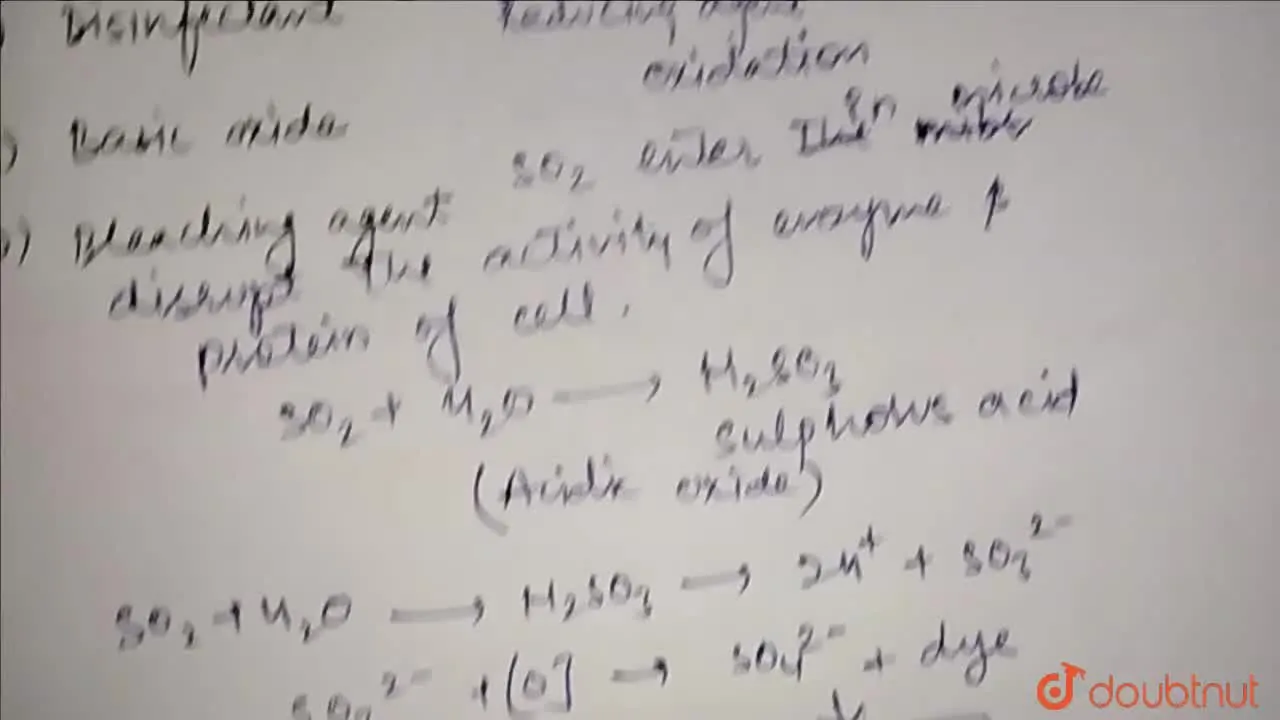 ) Disinfectant Reducing agent
oxidation
) Basic oxide
SO₂ enter the in microbe
) Bleaching agent
disrupt the activity of enzyme &
protein of cell.
SO₂ + H₂O ⟶ H₂SO₃
sulphous acid
(Acidic oxide)
SO₂ + H₂O ⟶ H₂SO₃ ⟶ 2H⁺ + SO₃²⁻
SO₃²⁻ + [O] ⟶ SO₄²⁻ + dye
doubtnut